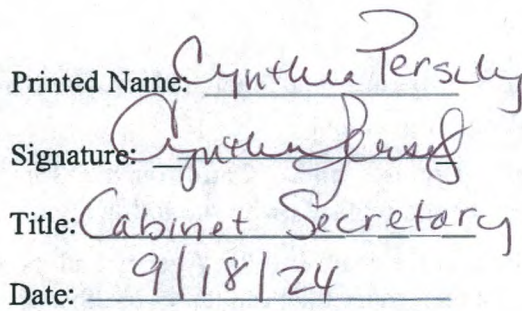 Printed Name: Cynthia Persily
Signature: Cynthia Persily
Title: Cabinet Secretary
Date: 9/18/24